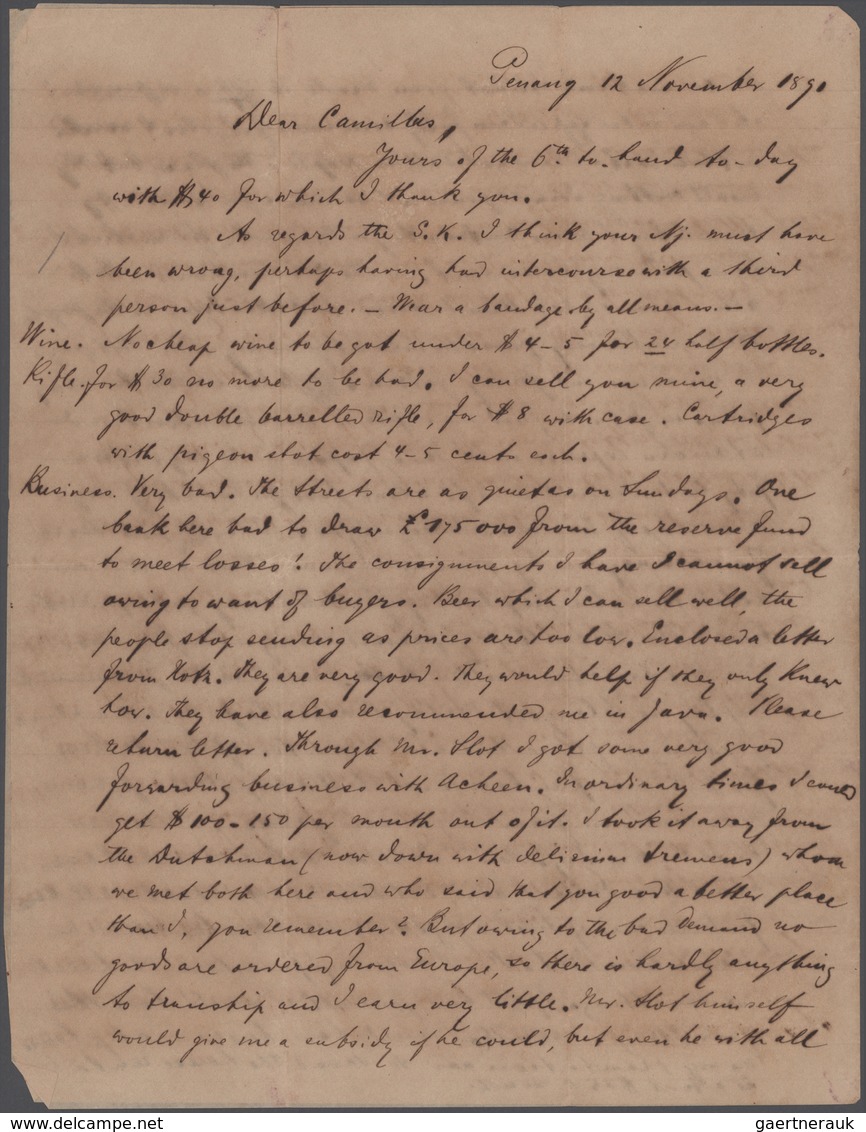 Penang 12 November 1891
Dear Camillus,
Yours of the 6th to hand to-day
with $40 for which I thank you.
As regards the S.K. I think your Nj. must have
been wrong, perhaps having had intercourse with a third
person just before. – Wear a bandage by all means. –
Wine. No cheap wine to be got under $4-5 for 24 half bottles.
Rifle. for $30 no more to be had. I can sell you mine, a very
good double barrelled rifle, for $8 with case. Cartridges
with pigeon shot cost 4-5 cents each.
Business. Very bad. The Streets are as quiet as on Sundays. One
bank here had to draw £175000 from the reserve fund
to meet losses! The consignments I have I cannot sell
owing to want of buyers. Beer which I can sell well, the
people stop sending as prices are too low. Enclosed a letter
from Hotz. They are very good. They would help if they only knew
how. They have also recommended me in Java. Please
return letter. Through Mr. Slot I got some very good
forwarding business with Acheen. In ordinary times I could
get $100-150 per month out of it. I took it away from
the Dutchman (now down with delirium tremens) whom
we met both here and who said that you good a better place
than I, you remember? But owing to the bad demand no
goods are ordered from Europe, so there is hardly anything
to tranship and I earn very little. Mr. Slot himself
would give me a subsidy if he could, but even he with all
gaertnerauk